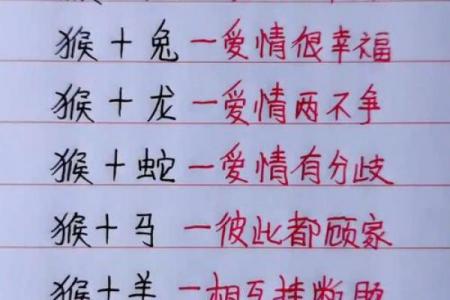 猴+兔一爱情很幸福
猴+龙一爱情两不争
猴+蛇一爱情有分歧
猴+马一彼此都顾家
猴+羊一相互